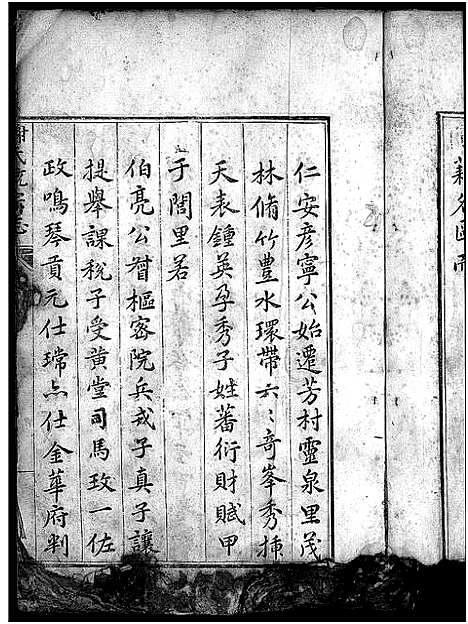 仁安彦寧公始遷芳村靈泉里茂
林脩竹豊水環帶六〻奇峯秀挿
天表鍾英孕秀子姓蕃衍財賦甲
于閭里若
伯亮公嘗樞宻院兵戎子真子讓
提舉課税子受黄堂司馬致一佐
政鳴琴貢元仕瑺点仕金華府判